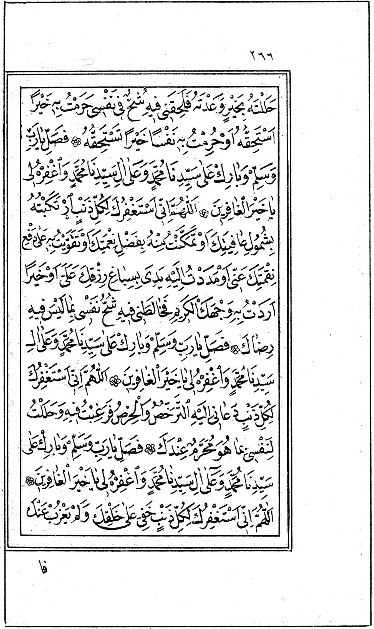 ٢٦٦
حَلَلْتُهُ بِخَيْرٍ وَعَدْتَهُ فَلَحِقَنِي فِيهِ شُحٌّ فِي نَفْسِي حَرَمْتُ بِهِ خَيْرًا
اَسْتَحِقُّهُ اَوْ حَرَمْتُ بِهِ نَفْسًا خَيْرًا تَسْتَحِقُّهُ ۞ فَصَلِّ يَا رَبِّ
وَسَلِّمْ وَبَارِكْ عَلَى سَيِّدِنَا مُحَمَّدٍ وَعَلَى اٰلِ سَيِّدِنَا مُحَمَّدٍ وَاغْفِرْهُ لِي
يَا خَيْرَ الْغَافِرِينَ ۞ اَللّٰهُمَّ اِنِّي اَسْتَغْفِرُكَ لِكُلِّ ذَنْبٍ اَرْتَكَبْتُهُ
بِشُمُولِ عَافِيَتِكَ اَوْ تَمَكَّنْتُ مِنْهُ بِفَضْلِ نِعْمَتِكَ اَوْ تَقَوَّيْتُ بِهِ عَلَى دَفْعِ
نِقْمَتِكَ عَنِّي اَوْ مَدَدْتُ اِلَيْهِ يَدِي بِسِبَاغِ رِزْقِكَ عَلَيَّ اَوْ خَيْرًا
اَرَدْتُ بِهِ وَجْهَكَ الْكَرِيمَ فَخَالَطَنِي فِيهِ شُحُّ نَفْسِي بِمَا لَيْسَ فِيهِ
رِضَاكَ ۞ فَصَلِّ يَا رَبِّ وَسَلِّمْ وَبَارِكْ عَلَى سَيِّدِنَا مُحَمَّدٍ وَعَلَى اٰلِ
سَيِّدِنَا مُحَمَّدٍ وَاغْفِرْهُ لِي يَا خَيْرَ الْغَافِرِينَ ۞ اَللّٰهُمَّ اِنِّي اَسْتَغْفِرُكَ
لِكُلِّ ذَنْبٍ دَعَانِي اِلَيْهِ التَّرَخُّصُ وَالْحِرْصُ فَرَغِبْتُ فِيهِ وَحَلَّلْتُ
لِنَفْسِي بِمَا هُوَ مُحَرَّمٌ عِنْدَكَ ۞ فَصَلِّ يَا رَبِّ وَسَلِّمْ وَبَارِكْ عَلَى
سَيِّدِنَا مُحَمَّدٍ وَعَلَى اٰلِ سَيِّدِنَا مُحَمَّدٍ وَاغْفِرْهُ لِي يَا خَيْرَ الْغَافِرِينَ ۞
اَللّٰهُمَّ اِنِّي اَسْتَغْفِرُكَ لِكُلِّ ذَنْبٍ خَفِيَ عَلَى خَلْقِكَ وَلَمْ يَعْزُبْ عَنْكَ
فا